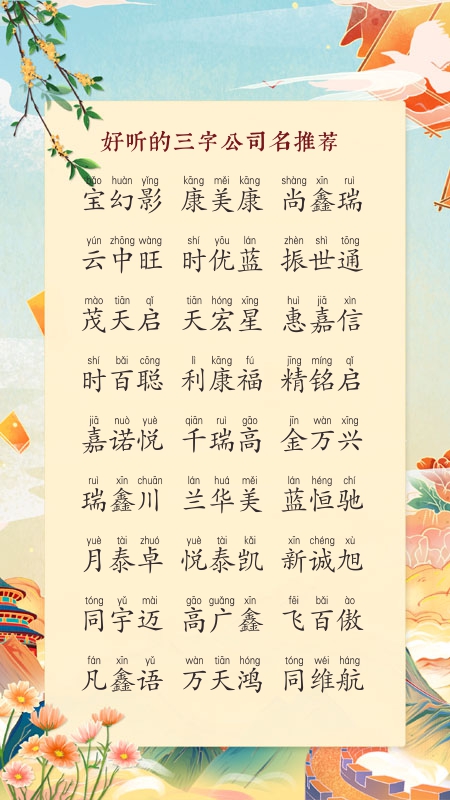 好听的三字公司名推荐
bǎo huàn yǐng kāng měi kāng shàng xīn ruì
宝幻影 康美康 尚鑫瑞
yún zhōng wàng shí yōu lán zhèn shì tōng
云中旺 时优蓝 振世通
mào tiān qǐ tiān hóng xīng huì jiā xìn
茂天启 天宏星 惠嘉信
shí bǎi cōng lì kāng fú jīng míng qǐ
时百聪 利康福 精铭启
jiā nuò yuè qiān ruì gāo jīn wàn xīng
嘉诺悦 千瑞高 金万兴
ruì xīn chuān lán huá měi lán héng chí
瑞鑫川 兰华美 蓝恒驰
yuè tài zhuó yuè tài kǎi xīn chéng xù
月泰卓 悦泰凯 新诚旭
tóng yǔ mài gāo guǎng xīn fēi bǎi ào
同宇迈 高广鑫 飞百傲
fán xīn yǔ wàn tiān hóng tóng wéi háng
凡鑫语 万天鸿 同维航